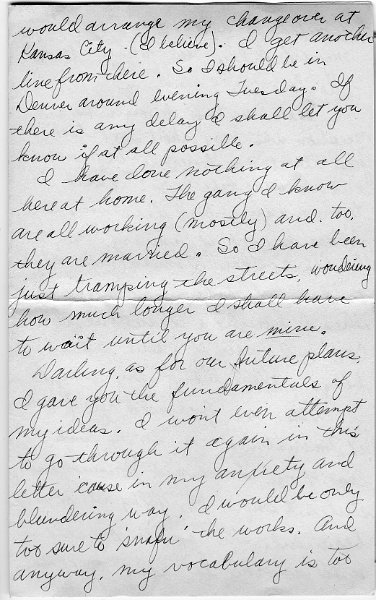 would arrange my changeover at
Kansas City. (I believe). I get another
line from there. So I should be in
Denver around evening Tuesday. If
there is any delay I shall let you
know if at all possible.
I have done nothing at all
here at home. The gang I know
are all working (mostly) and, too,
they are married. So I have been
just tramping the streets, wondering
how much longer I shall have
to wait until you are mine.
Darling, as for our future plans,
I gave you the fundamentals of
my ideas. I won't even attempt
to go through it again in this
letter 'cause in my anxiety and
blundering way, I would be only
too sure to 'snafu' the works. And
anyway, my vocabulary is too